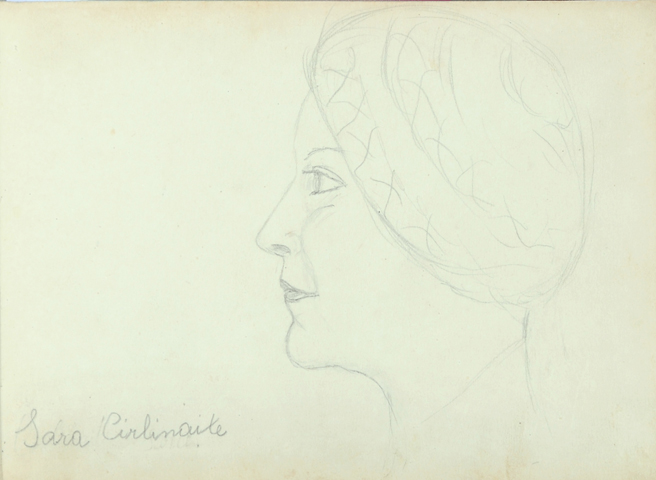 Sara Cirlinaite